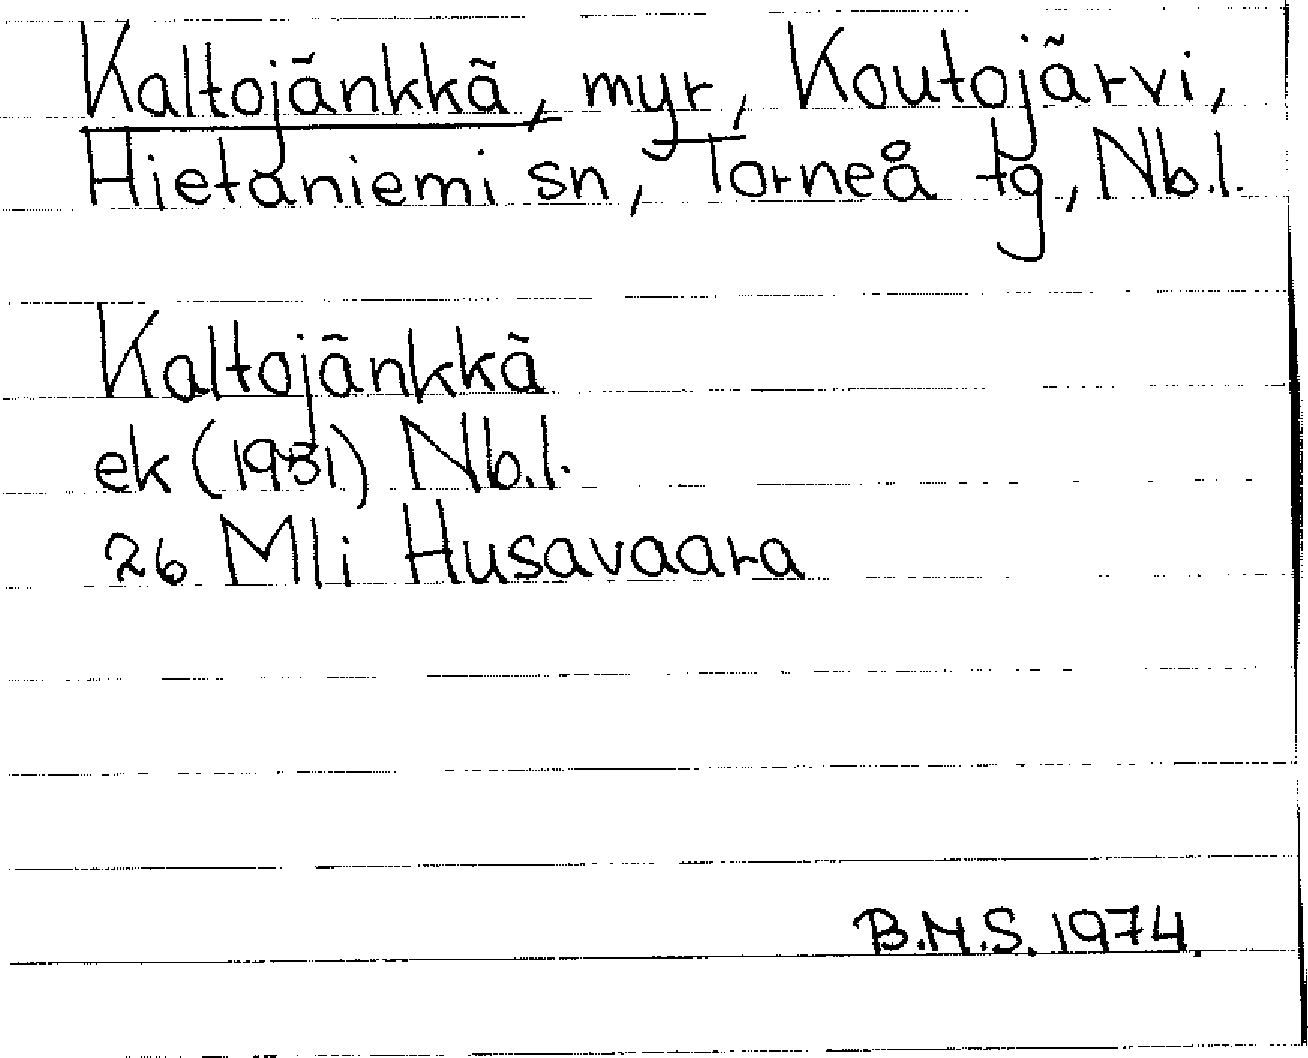 Kaltojänkkä, myr, Koutojärvi,
Hietaniemi sn, Torneå tg, Nb.l.
Kaltojänkkä
ek (1931) Nb.l.
26 Mli Husavaara
B.M.S. 1974.